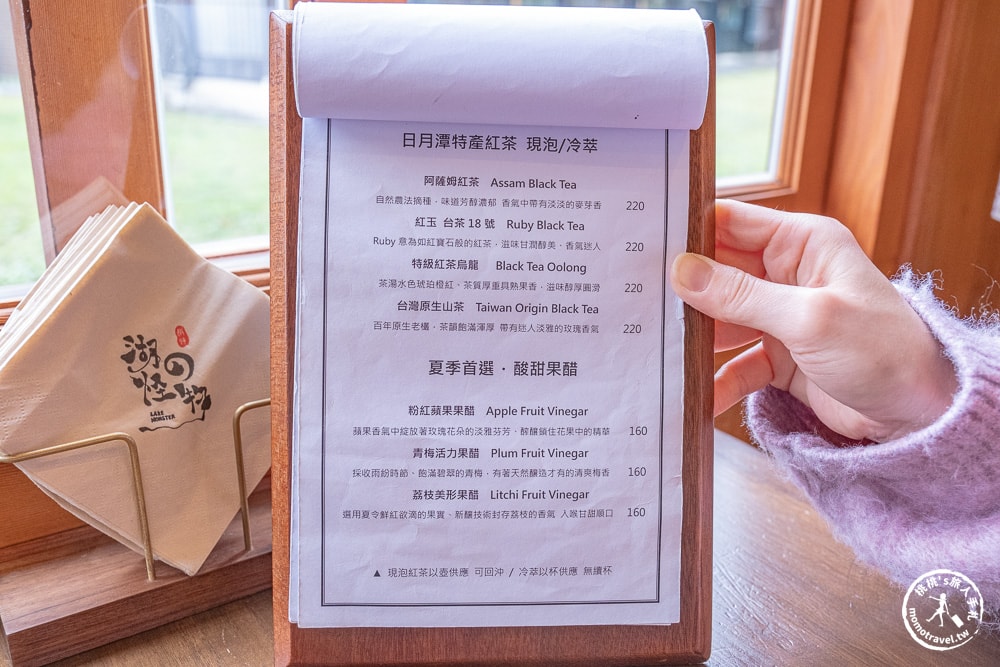 日月潭特產紅茶 現泡/冷萃
阿薩姆紅茶 Assam Black Tea
自然農法摘種，味道芳醇濃郁 香氣中帶有淡淡的麥芽香 220
紅玉 台茶18號 Ruby Black Tea
Ruby 意為如紅寶石般的紅茶，滋味甘潤醇美、香氣迷人 220
特級紅茶烏龍 Black Tea Oolong
茶湯水色琥珀橙紅、茶質厚重具熟果香，滋味醇厚圓滑 220
台灣原生山茶 Taiwan Origin Black Tea
百年原生老欉，茶韻飽滿渾厚 帶有迷人淡雅的玫瑰香氣 220
夏季首選・酸甜果醋
粉紅蘋果果醋 Apple Fruit Vinegar
蘋果香氣中綻放著玫瑰花朵的淡雅芬芳、醡釀鎖住花果中的精華 160
青梅活力果醋 Plum Fruit Vinegar
採收雨紛時節、飽滿碧翠的青梅，有著天然釀造才有的清爽梅香 160
荔枝美形果醋 Litchi Fruit Vinegar
選用夏令鮮紅欲滴的果實、新釀技術封存荔枝的香氣 入喉甘甜順口 160
▲ 現泡紅茶以壺供應 可回沖 / 冷萃以杯供應 無續杯
湖の怪物
LAKE
MONSTEA
桃桃's旅人手札
momotravel.tw